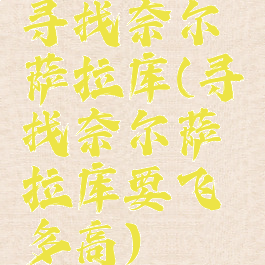 寻找奈尔
萨拉库(寻
找奈尔萨
拉库要飞
多高)